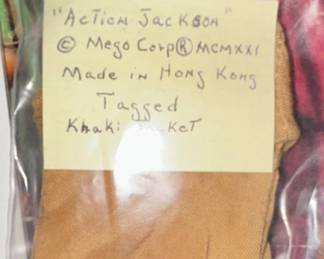 "Action Jackson"
© Mego Corp® MCMXXI
Made in Hong Kong
Tagged
Khaki